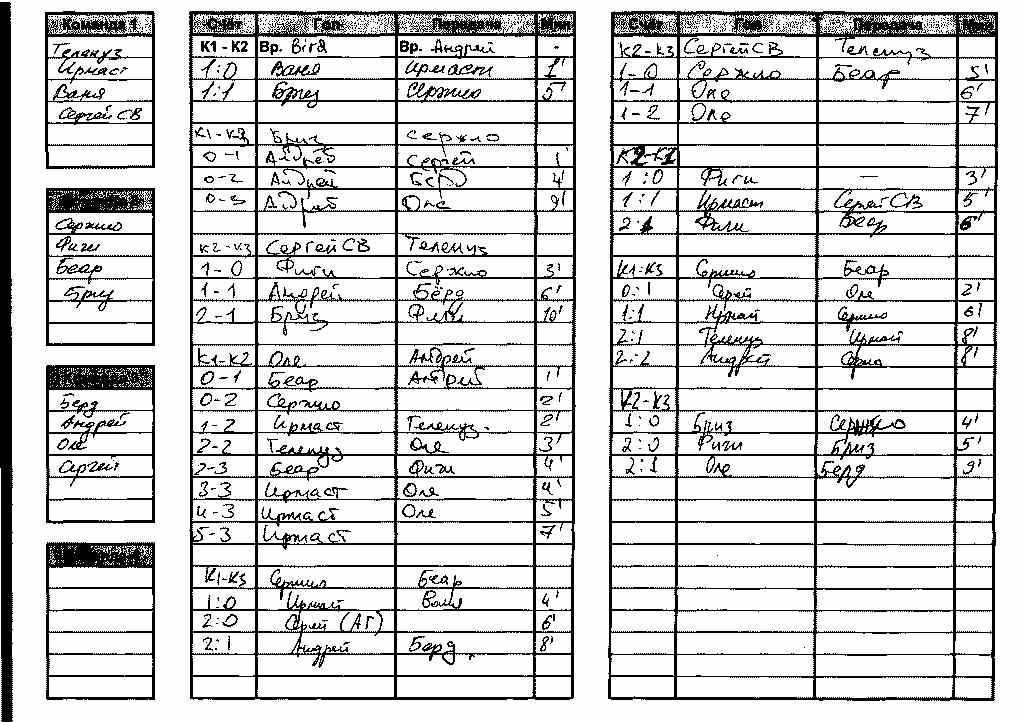 Команда 1
Теленуз
Ирмаст
Ваня
Сергей СВ
Сержио
Фиги
Беар
Бриз
Берд
Андрей
Оле
Сергей
Счёт Гол Передача Мин
К1 - К2 Вр. Bird Вр. Андрей -
1:0 Ваня Ирмаст 1'
1:1 Бриз Сержио 5'
К1-К3 Бриз Сержио
0-1 Андрей Сергей 1'
0-2 Андрей Берд 4'
0-3 Андрей Оле 9'
К2-К3 Сергей СВ Теленуз
1-0 Фиги Сержио 3'
1-1 Андрей Бёрд 6'
2-1 Бриз Фиги 10'
К1-К2 Оле Андрей
0-1 Беар Андрей 1'
0-2 Сержио 2'
1-2 Ирмаст Теленуз. 2'
2-2 Теленуз Оле 3'
2-3 Беар Фиги 4'
3-3 Ирмаст Оле 4'
4-3 Ирмаст Оле 5'
5-3 Ирмаст 7'
К1-К3 Сержио Беар
1:0 Ирмаст Ваня 4'
2:0 Сергей (АГ) 6'
2:1 Андрей Берд. 8'
Счёт Гол Передача Мин
К2-К3 Сергей СВ Теленуз
1-0 Сержио Беар 5'
1-1 Оле 6'
1-2 Оле 7'
К2-К1
1:0 Фиги — 3'
1:1 Ирмаст Сергей СВ 5'
2:1 Фиги Беар 6'
К1:К3 Сержио Беар
0:1 Сергей Оле 2'
1:1 Ирмаст Сержио 6'
2:1 Теленуз Ирмаст 8'
2:2 Андрей Сержио 8'
К2-К3
1:0 Бриз Сержио 4'
2:0 Фиги Бриз 5'
2:1 Оле Берд 9'